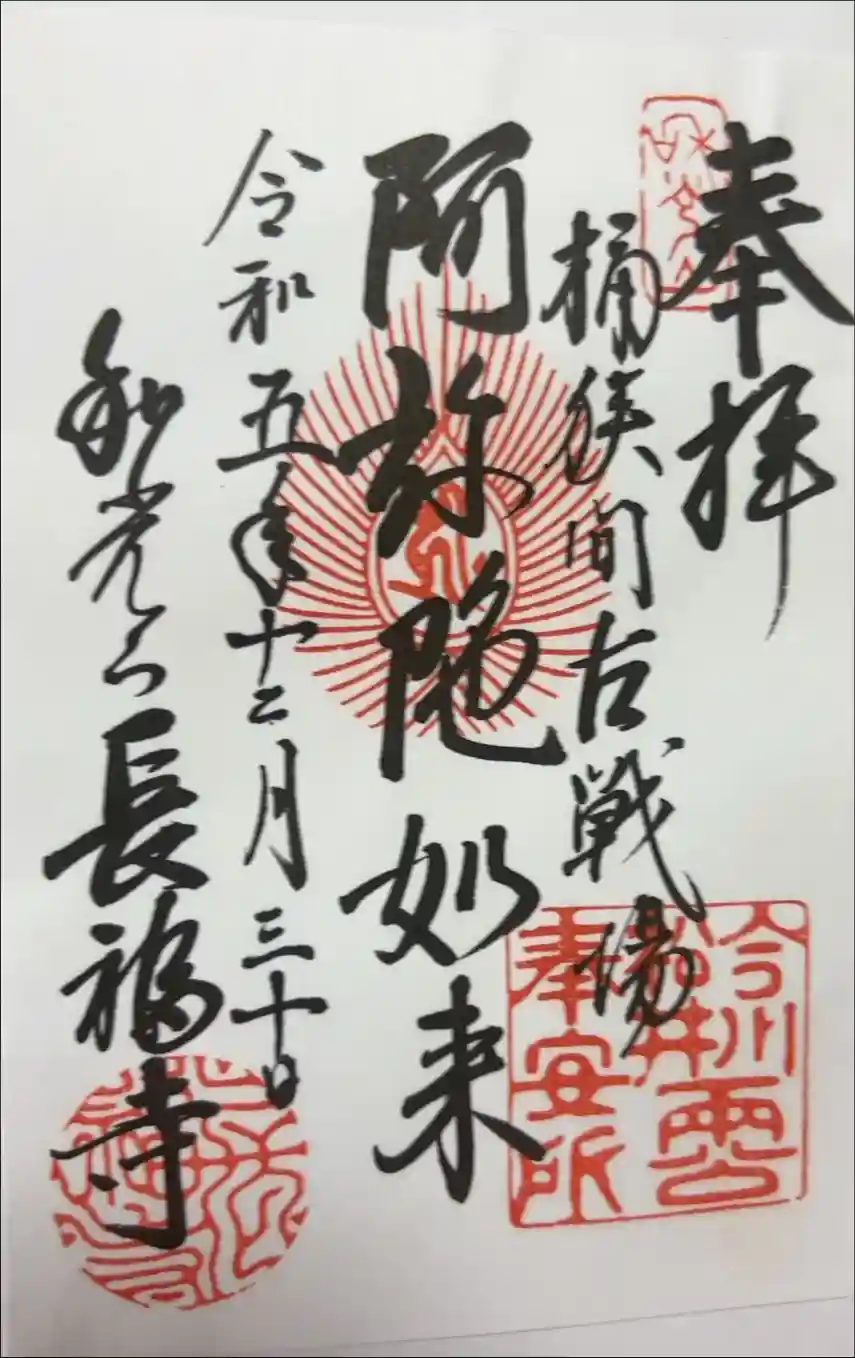 奉拝
桶狭間古戦場
阿弥陀如来
令和五年十二月三十日
和光山長福寺
今川
松井両公
奉安所